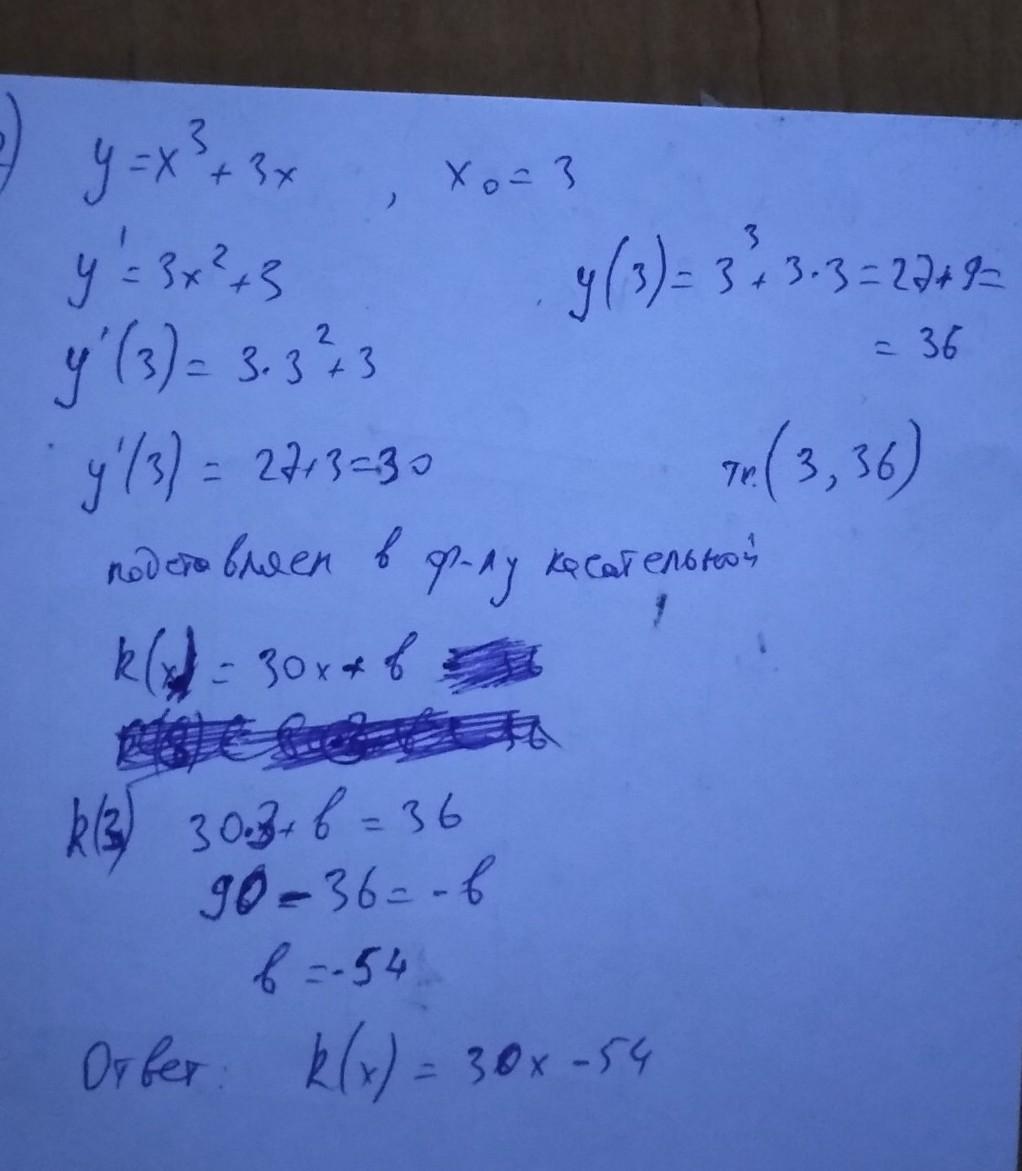 ) y = x³ + 3x , x₀ = 3
y' = 3x² + 3
y(3) = 3³ + 3·3 = 27 + 9 =
= 36
y'(3) = 3·3² + 3
y'(3) = 27 + 3 = 30
тк. (3, 36)
подставляем в ф-лу касательной
k(x) = 30x + b
k(3) 30·3 + b = 36
90 - 36 = -b
b = -54
Ответ: k(x) = 30x - 54